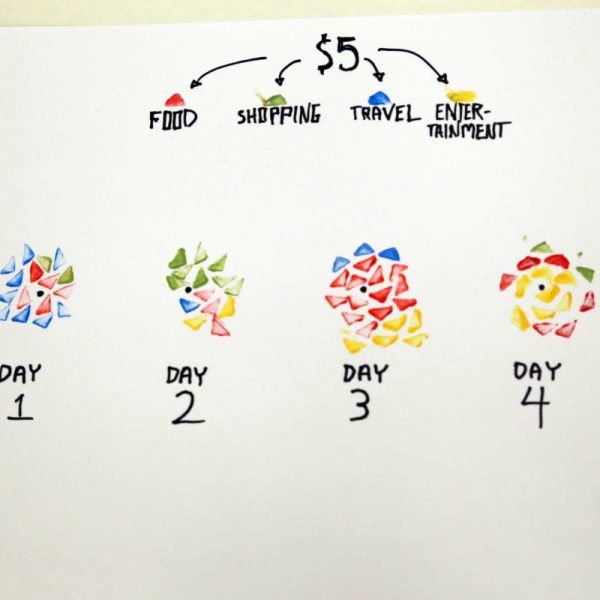 $5
FOOD SHOPPING TRAVEL ENTER-
TAINMENT
DAY DAY DAY DAY
1 2 3 4